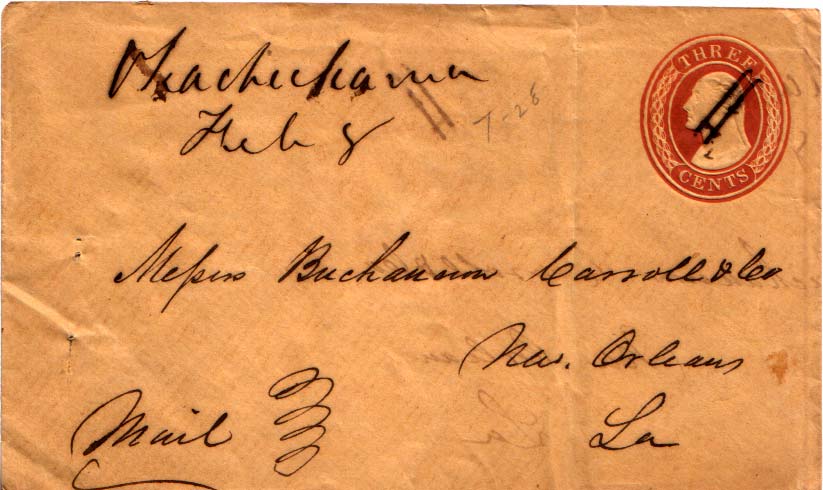 Feb 8
7-28
THREE
CENTS
Messrs Buchannon Carroll & Co
New. Orleans
Mail
La